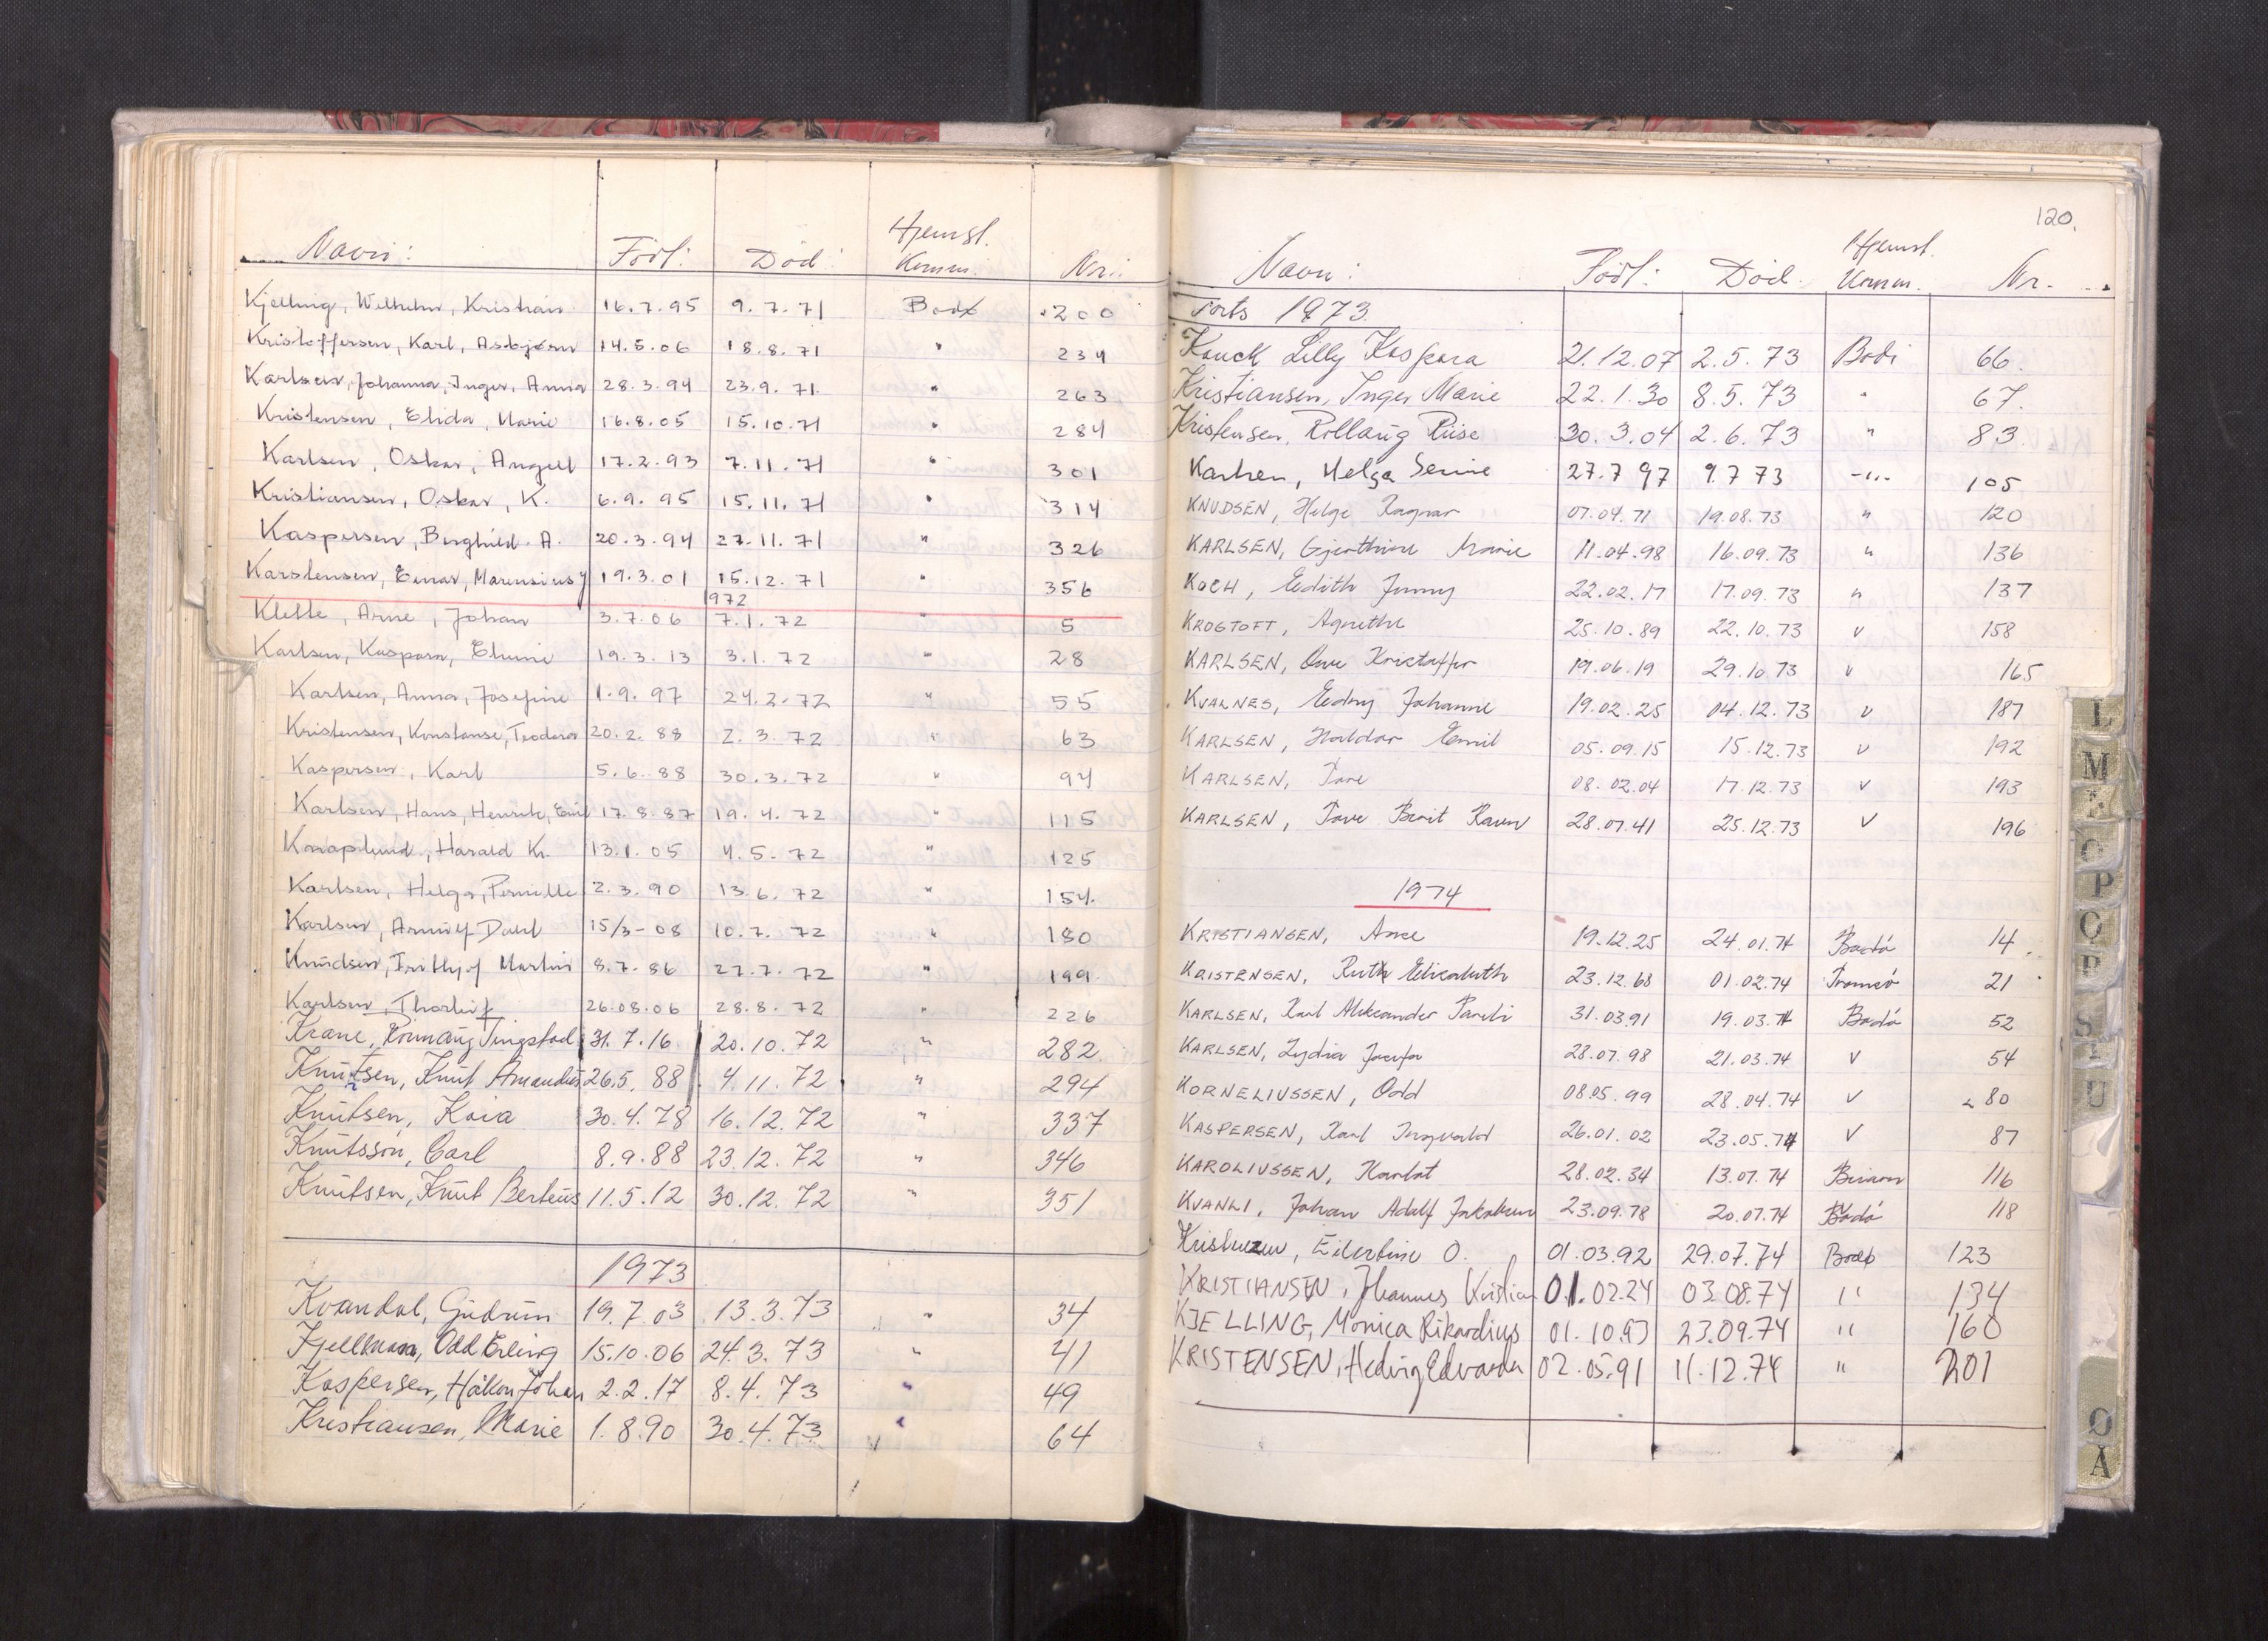 Navn: Født: Død: Hjemst. Komm. Nr.:
Kjelling, Wilhelm, Kristian 16.7.95 9.7.71 Bodø 200
Kristoffersen, Karl, Asbjørn 14.5.06 18.8.71 " 234
Karlsen, Johanna, Inger, Anna 28.3.94 23.9.71 " 263
Kristensen, Elida, Marie 16.8.05 15.10.71 " 284
Karlsen, Oskar, Angell 17.2.93 7.11.71 " 301
Kristiansen, Oskar, K. 6.9.95 15.11.71 " 314
Kaspersen, Borghild. A. 20.3.94 27.11.71 " 326
Karstensen, Einar, Marensius J 19.3.01 15.12.71 " 356
1972
Klette, Arne, Johan 3.7.06 7.1.72 " 5
Karlsen, Kaspara, Elvine 19.3.13 3.1.72 " 28
Karlsen, Anna, Josefine 1.9.97 24.2.72 " 55
Kristensen, Konstanse, Teodora 20.2.88 2.3.72 " 63
Kaspersen, Karl 5.6.88 30.3.72 " 94
Karlsen, Hans, Henrik, Emil 17.8.87 19.4.72 " 115
Knaplund, Harald Kr. 13.1.05 4.5.72 " 125
Karlsen, Helga, Pernille 2.3.90 13.6.72 " 154.
Karlsen, Arnulf Dahl 15/3-08 10.7.72 " 180
Knudsen, Frithjof Martin 8.7.86 27.7.72 " 199
Karlsen, Thorleif 26.08.06 28.8.72 " 226
Krane, Ronnaug Tingstad 31.7.16 20.10.72 " 282
Knutsen, Knut Amandus 26.5.88 4.11.72 " 294
Knutsen, Kaia 30.4.78 16.12.72 " 337
Knutsson, Carl 8.9.88 23.12.72 " 346
Knutsen, Knut Berteus 11.5.12 30.12.72 " 351
1973
Kvandal, Gudrun 19.7.03 13.3.73 " 34
Kjellman, Odd Erling 15.10.06 24.3.73 " 41
Kaspersen, Håkon Johan 2.2.17 8.4.73 " 49
Kristiansen, Marie 1.8.90 30.4.73 " 64
120.
Navn: Født: Død. Hjemst. Komm. Nr.
Forts 1973
Kouck Lilly Kaspara 21.12.07 2.5.73 Bodø 66.
Kristiansen, Inger Marie 22.1.30 8.5.73 " 67.
Kristensen, Rollaug Riise 30.3.04 2.6.73 " 83.
Karlsen, Helga Serine 27.7 97 9.7 73 -"- 105
KNUDSEN, Helge Ragnar 07.04.71 19.08.73 " 120
KARLSEN, Gjerthine Marie 11.04.98 16.09.73 " 136
KOCH, Edith Jenny 22.02.17 17.09.73 " 137
KROGTOFT, Agnethe 25.10.89 22.10.73 v 158
KARLSEN, Ove Kristoffer 19.06.19 29.10.73 v 165
KVALNES, Edny Johanne 19.02.25 04.12.73 v 187
KARLSEN, Haldor Emil 05.09.15 15.12.73 v 192
KARLSEN, Tore 08.02.04 17.12.73 v 193
KARLSEN, Tove Berit Karen 28.07.41 25.12.73 v 196
1974
KRISTIANSEN, Arne 19.12.25 24.01.74 Bodø 14
KRISTENSEN, Ruth Elisabeth 23.12.68 01.02.74 Tromsø 21
KARLSEN, Karl Aleksander Pareli 31.03.91 19.03.74 Bodø 52
KARLSEN, Lydia Josefa 28.07.98 21.03.74 v 54
KORNELIUSSEN, Odd 08.05.99 28.04.74 v 80
KASPERSEN, Karl Ingvald 26.01.02 23.05.74 v 87
KAROLIUSSEN, Harlot 28.02.34 13.07.74 116
KVANLI, Johan Adolf Jakobsen 23.09.78 20.07.74 Bodø 118
Kristensen, Eilertine O. 01.03.92 29.07.74 Bodø 123
KRISTIANSEN, Johannes Kristian 01.02.24 03.08.74 " 134
KJELLING, Monica Rikardius 01.10.93 23.09.74 " 160
KRISTENSEN, Hedvig Edvarda 02.05.91 11.12.74 " 201
L
M
O
P
Q
R
S
U
Ø
Å